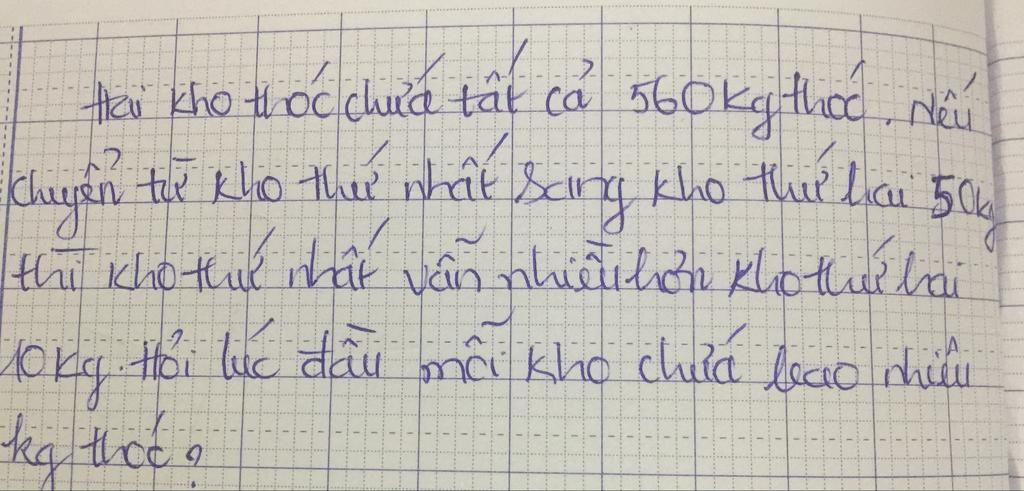 Hai kho thóc chứa tất cả 560kg thóc. Nếu
chuyển từ kho thứ nhất sang kho thứ hai 50kg
thì kho thứ nhất vẫn nhiều hơn kho thứ hai
10kg. Hỏi lúc đầu mỗi kho chứa bao nhiêu
kg thóc?